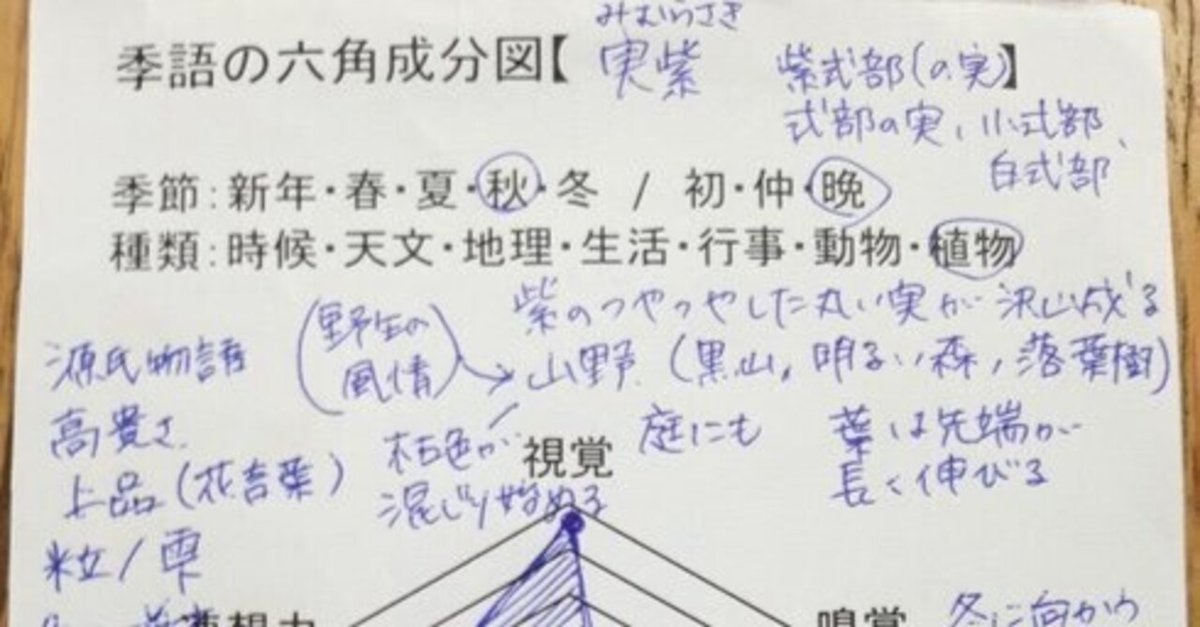 みむらさき
季語の六角成分図【 実紫 紫式部(の実)】
式部の実、小式部、
白式部
季節:新年・春・夏・秋・冬 / 初・仲・晩
種類:時候・天文・地理・生活・行事・動物・植物
紫のつやつやした丸い実が沢山成る
源氏物語 (野生の風情) 山野 (黒山, 明るい森, 落葉樹)
高貴さ 枯色が 視覚 庭にも 葉は先端が
上品(花言葉) 混じり始める 長く伸びる
粒/雫
連想力 嗅覚 冬に向かう